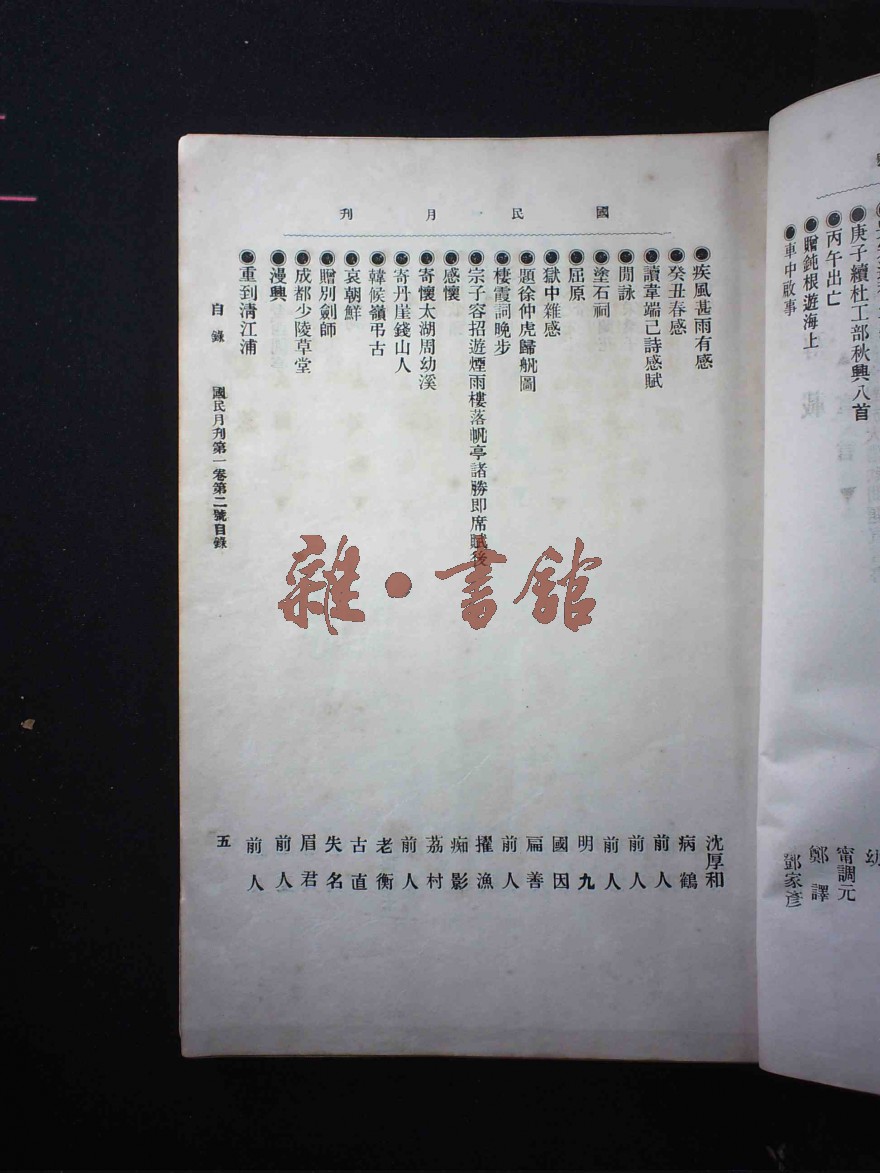 庚子續杜工部秋興八首
丙午出亡　甯調元
贈鈍根遊海上　鄭譯
車中啟事　鄧家彥
國民月刊
疾風甚雨有感　沈厚和
癸丑春感　病鶴
讀韋端己詩感賦　前人
閒詠　前人
塗石祠　前人
屈原　明九
獄中雜感　國因
題徐仲虎歸舤圖　扁善
棲霞詞晚步　前人
宗子容招遊煙雨樓落帆亭諸勝即席賦後　擢漁
感懷　痴影
寄懷太湖周幼溪　荔村
寄丹崖錢山人　前人
韓候嶺弔古　老衡
哀朝鮮　古直
贈別劍師　失名
成都少陵草堂　眉君
漫興　前人
重到淸江浦　前人
目錄　國民月刊第一卷第二號目錄　五
雜·書館